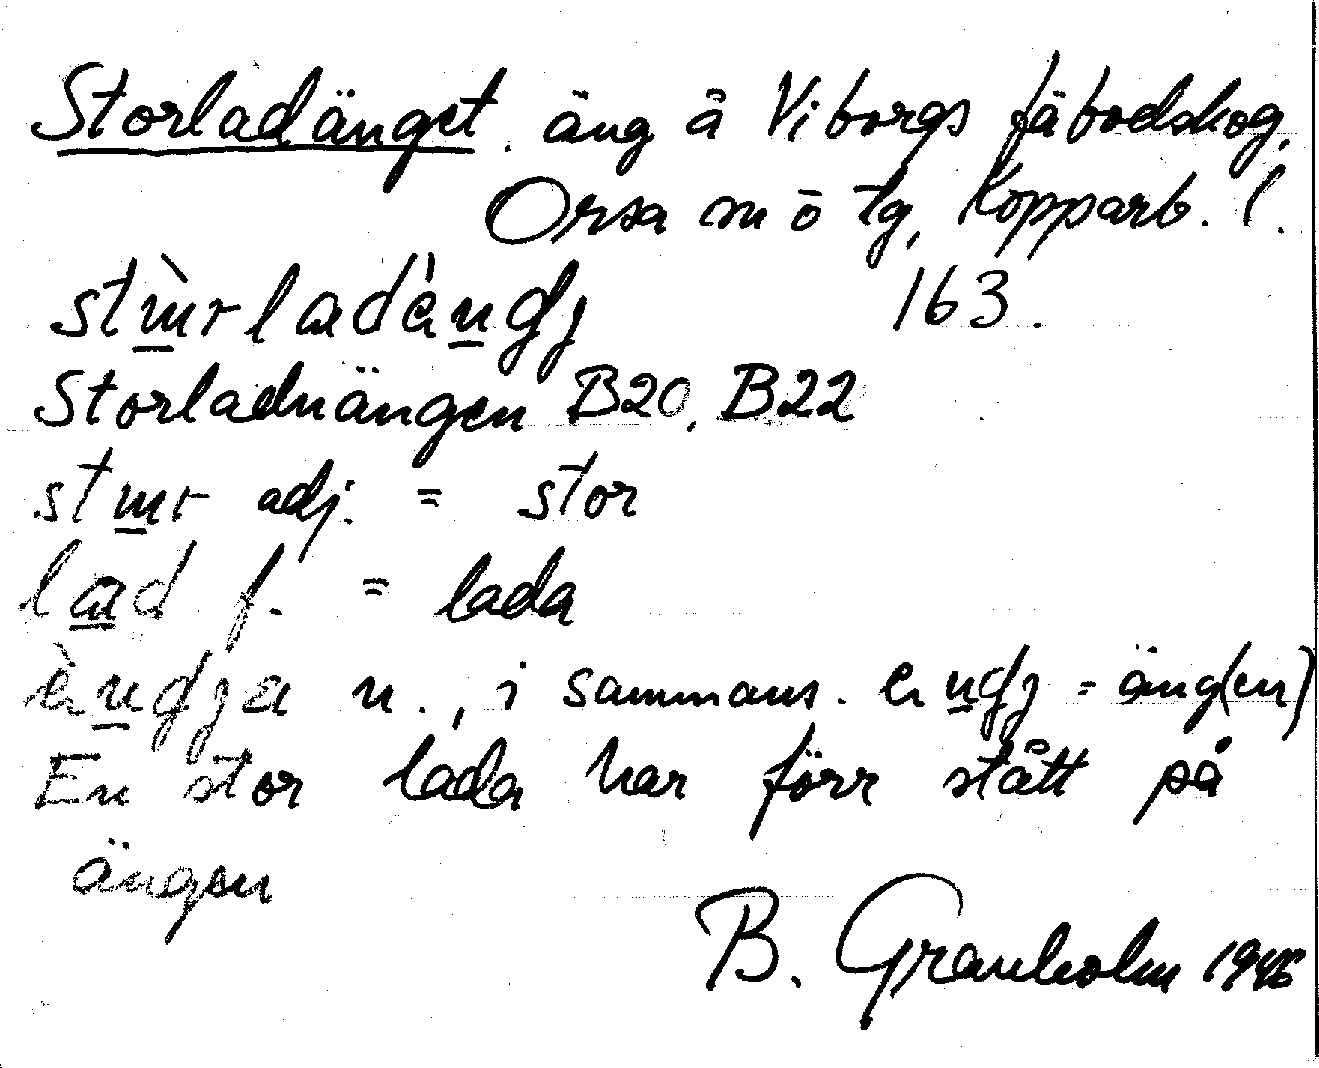 Storladänget. äng å Viborgs fäbodskog,
Orsa sn ö tg, Kopparb. l.
stɯ̠̀rladæ̀n̠dʒ 163.
Storladuängen B20, B22
stɯ̠r adj. = stor
la̠d f. = lada
æ̀n̠dʒa n., i sammans. æn̠dʒ = äng(en)
En stor lada har förr stått på
ängen
B. Granholm 1946